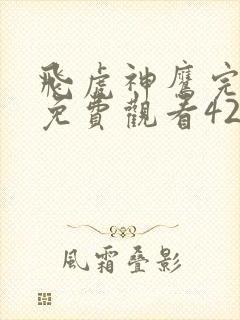 飛虎神鷹完
免費觀看42
風霜叠影